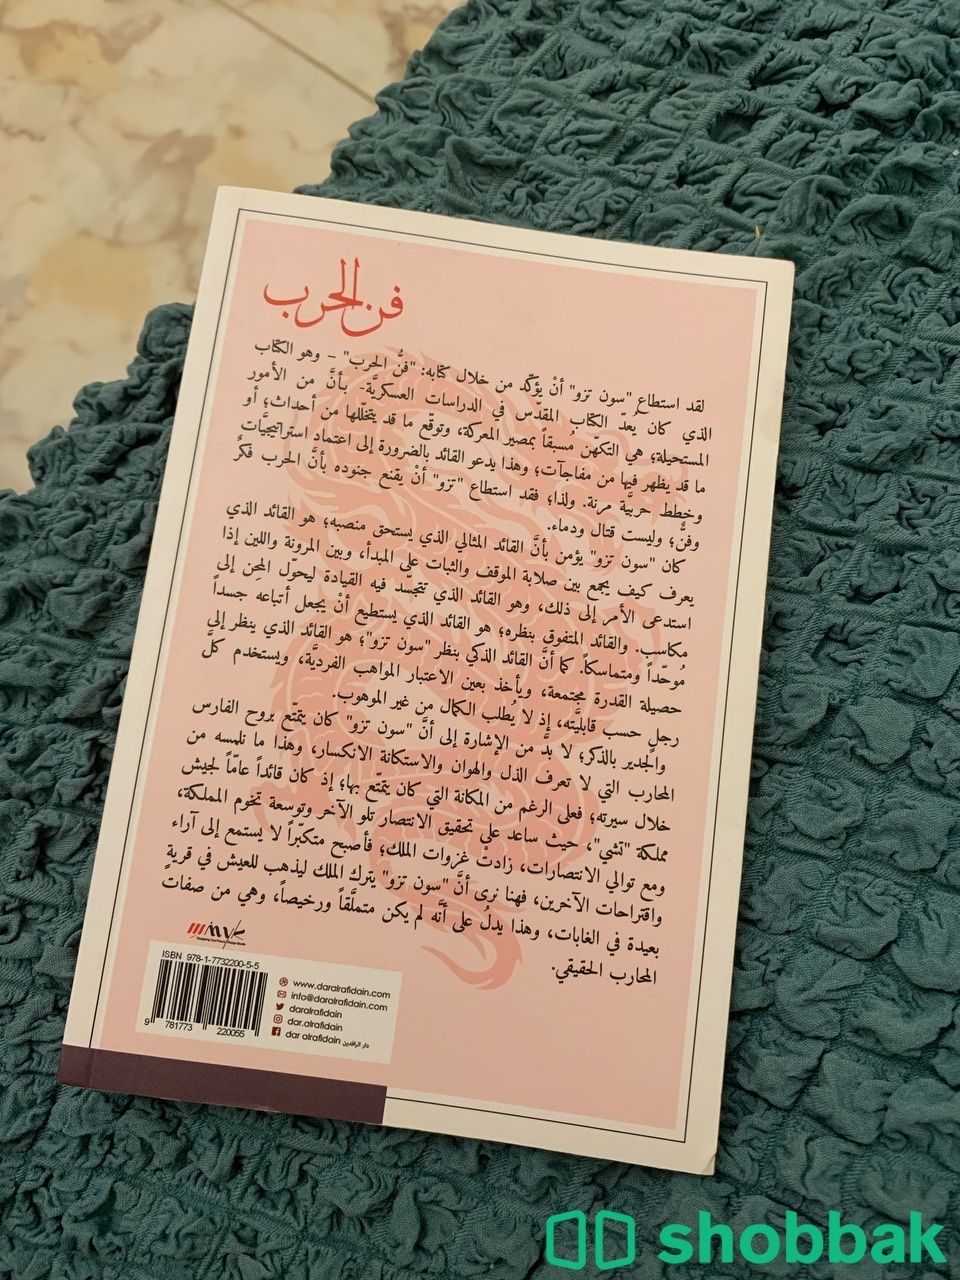 فن الحرب
لقد استطاع "سون تزو" أنْ يؤكّد من خلال كتابه: "فنُّ الحرب" – وهو الكتاب
الذي كان يُعدّ الكتاب المقدّس في الدراسات العسكريَّة- بأنَّ من الأمور
المستحيلة؛ هي التكهّن مُسبقاً بمصير المعركة، وتوقع ما قد يتخللها من أحداث؛ أو
ما قد يظهر فيها من مفاجآت؛ وهذا يدعو القائد بالضرورة إلى اعتماد استراتيجيَّات
وخطط حربيَّة مرنة. ولذا؛ فقد استطاع "تزو" أنْ يقنع جنوده بأنَّ الحرب فكرٌ
وفنٌّ؛ وليست قتال ودماء.
كان "سون تزو" يؤمن بأنَّ القائد المثالي الذي يستحق منصبه؛ هو القائد الذي
يعرف كيف يجمع بين صلابة الموقف والثبات على المبدأ، وبين المرونة واللين إذا
استدعى الأمر إلى ذلك، وهو القائد الذي تتجسّد فيه القيادة ليحوّل المحِن إلى
مكاسب. والقائد المتفوق بنظره؛ هو القائد الذي يستطيع أنْ يجعل أتباعه جسداً
مُوحّداً ومتماسكاً. كما أنَّ القائد الذكي بنظر "سون تزو"؛ هو القائد الذي ينظر إلى
حصيلة القدرة مجتمعة، ويأخذ بعين الاعتبار المواهب الفرديَّة، ويستخدم كلَّ
رجلٍ حسب قابليَّته، إذ لا يُطلب الكمال من غير الموهوب.
والجدير بالذكر؛ لا بدَّ من الإشارة إلى أنَّ "سون تزو" كان يتمتّع بروح الفارس
المحارب التي لا تعرف الذل والهوان والاستكانة الانكسار، وهذا ما نلمسه من
خلال سيرته؛ فعلى الرغم من المكانة التي كان يتمتّع بها؛ إذ كان قائداً عامّاً لجيش
مملكة "تشي"، حيث ساعد على تحقيق الانتصار تلو الآخر وتوسعة تخوم المملكة،
ومع توالي الانتصارات، زادتْ غزوات الملك؛ فأصبح متكبّراً لا يستمع إلى آراء
واقتراحات الآخرين، فهنا نرى أنَّ "سون تزو" يترك الملك ليذهب للعيش في قرية
بعيدة في الغابات، وهذا يدلُ على أنَّه لم يكن متملَّقاً ورخيصاً، وهي من صفات
المحارب الحقيقي.
ISBN 978-1-7732200-5-5
9 781773 220055
www.daralrafidain.com
info@daralrafidain.com
daralrafidain
dar.alrafidain
dar alrafidain دار الرافدين
shobbak